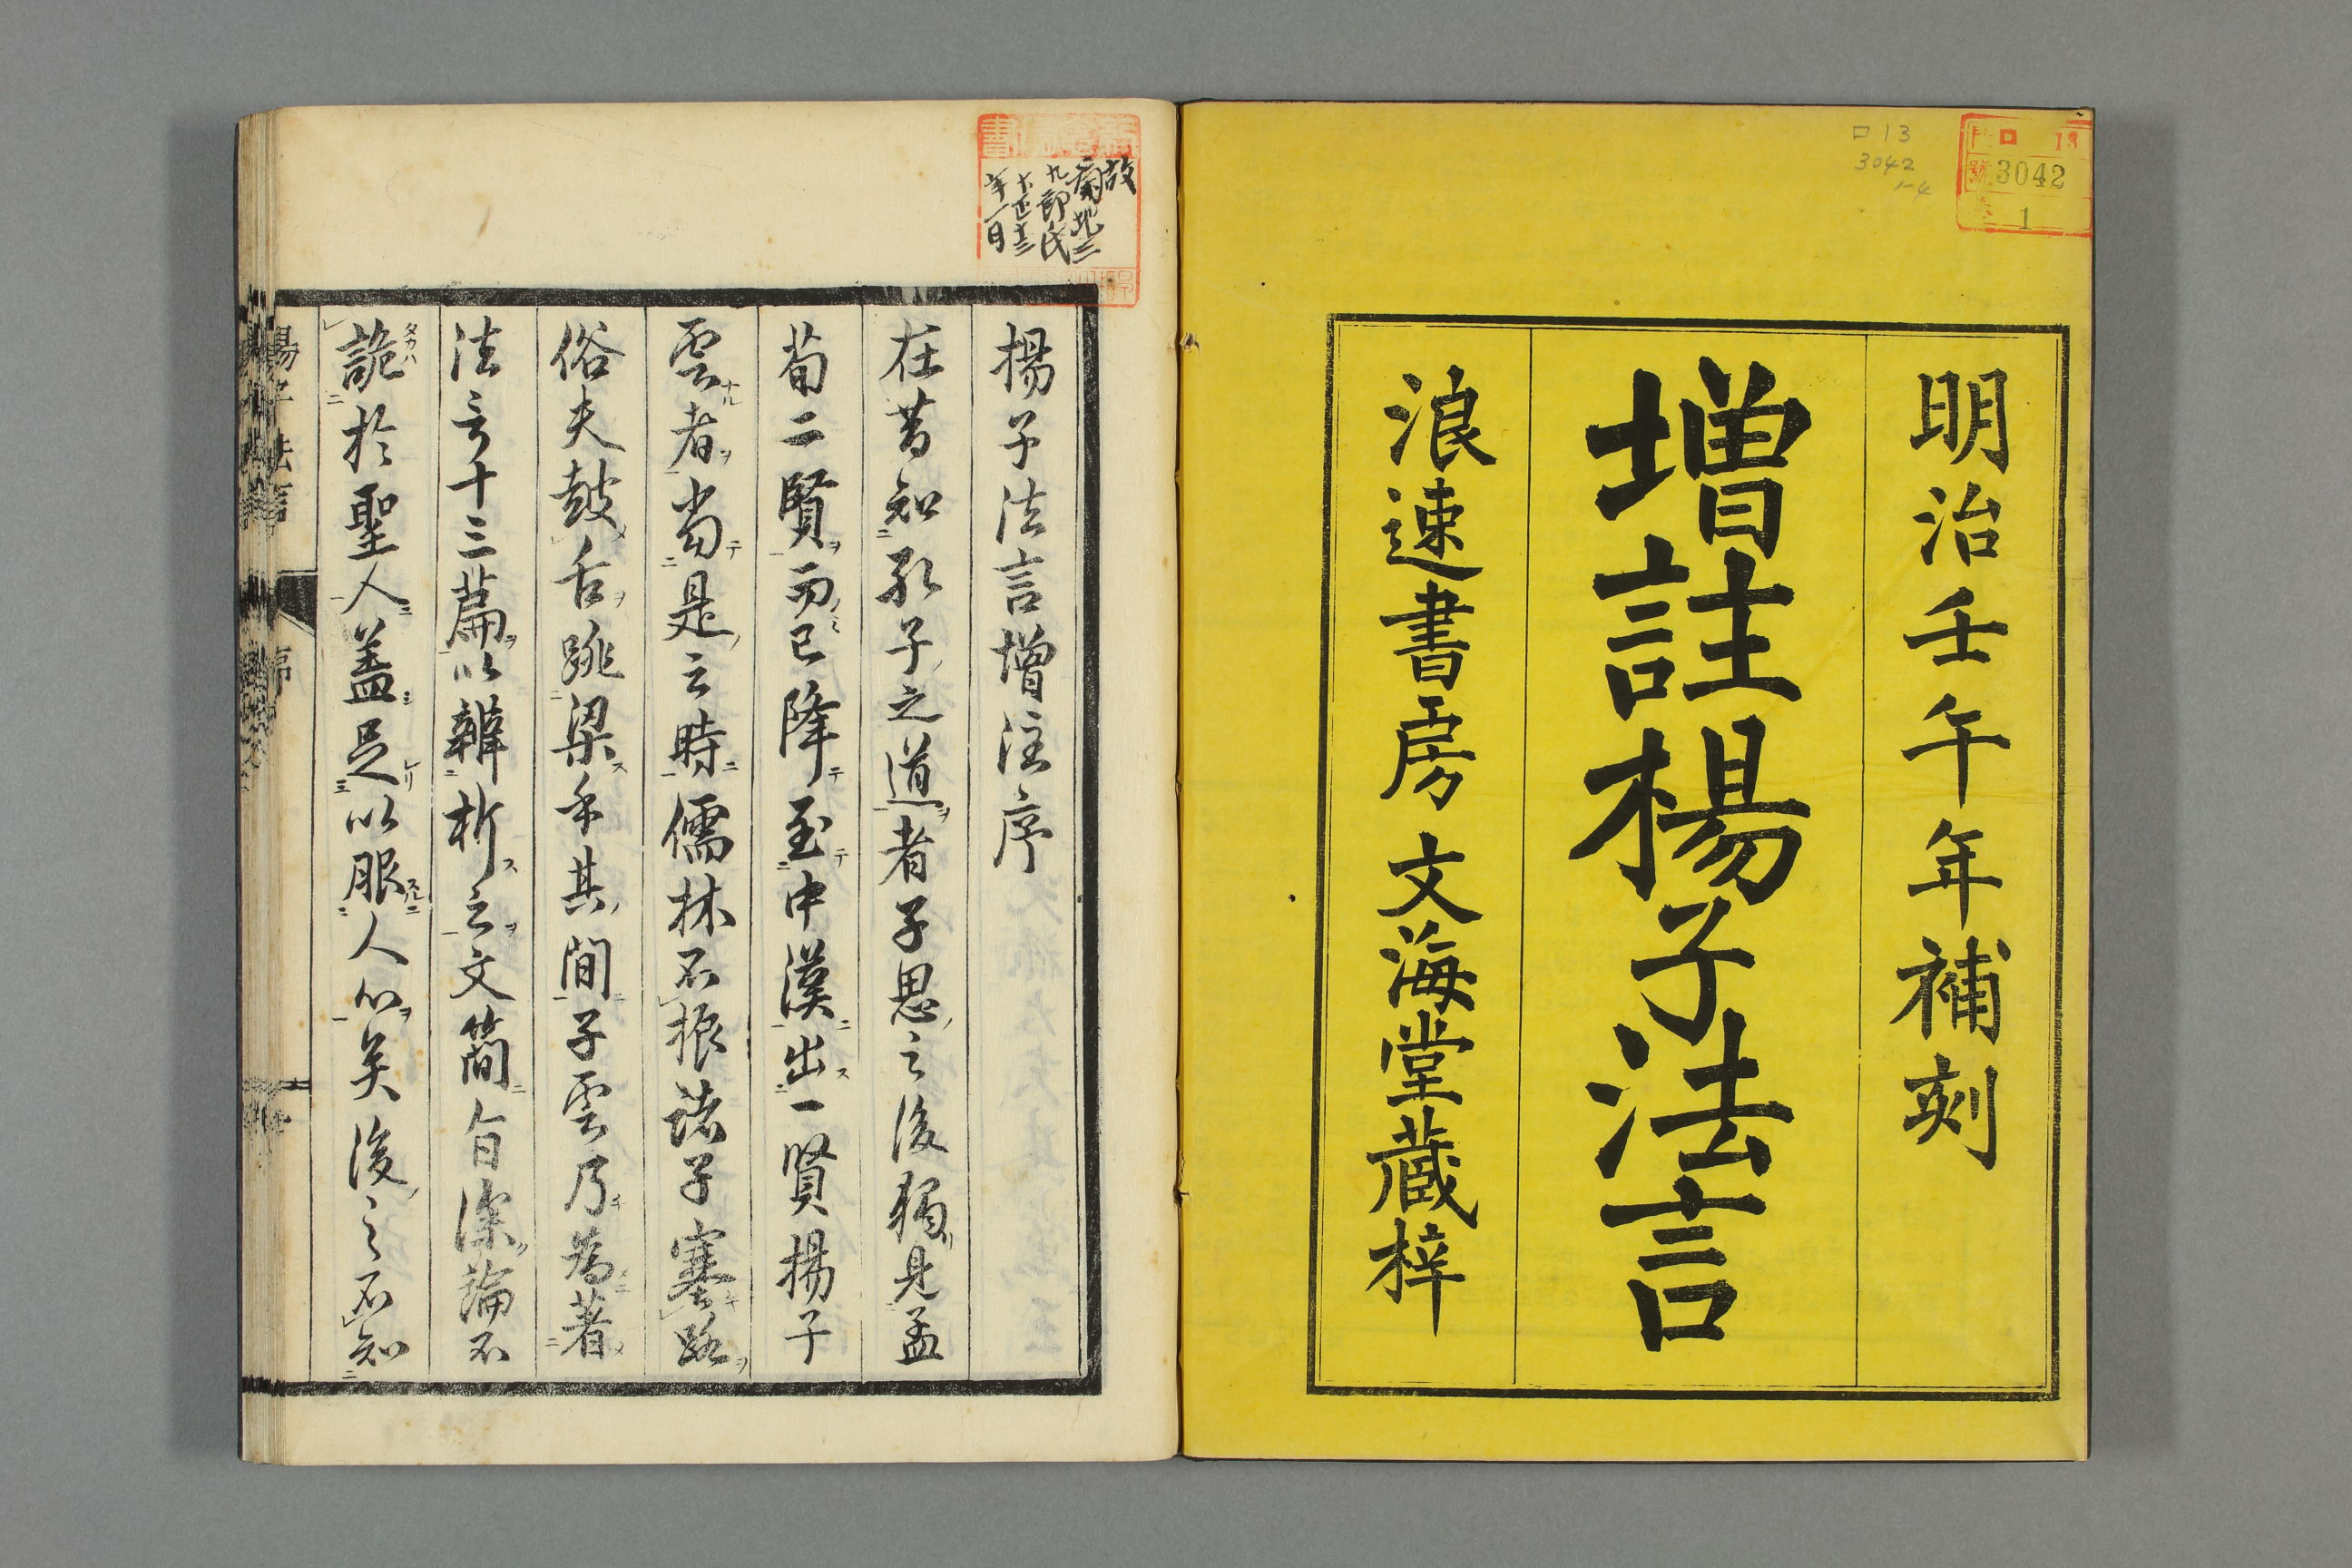 明治壬午年補刻
増註楊子法言
浪速書房 文海堂蔵梓
ロ13
3042
1-4
門 ロ 13
號 3042
巻 1
故
菊池三
九郎氏
大正十三
年一月
揚子法言增注序
在昔知孔子之道者子思之後獨見孟
荀二賢而已降至中漢出一賢揚子
雲者當是之時儒林不振諸子塞路
俗夫鼓舌跳梁乎其間子雲乃為著
法言十三篇以辨析之文簡旨深論不
詭於聖人蓋足以服人心矣後之不知
揚子法言 序